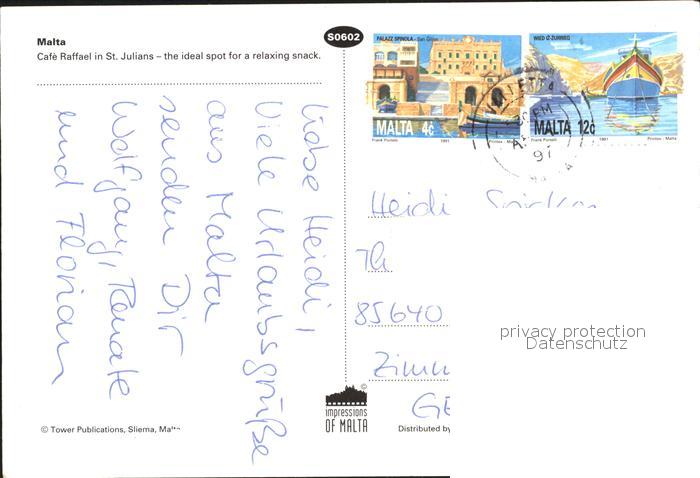 Malta
Cafè Raffael in St. Julians – the ideal spot for a relaxing snack.
S0602
PALAZZ SPINOLA - San Ġiljan
MALTA 4c
Frank Portelli 1991 Printex - Malta
WIED IŻ-ŻURRIEQ
MALTA 12c
Frank Portelli 1991 Printex - Malta
VALLETTA
PM
91
Liebe Heidi,
Viele Urlaubsgrüße
aus Malta
senden Dir
Wolfgang, Renate
und Florian
Heidi
Th
85640
Zimm
GE
privacy protection
Datenschutz
© Tower Publications, Sliema, Ma
©
impressions
OF MALTA
Distributed by